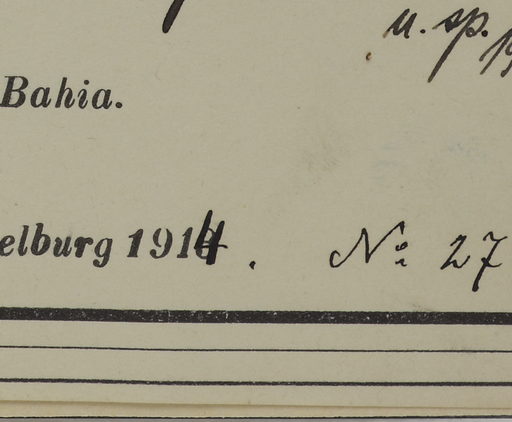 n. sp.
Bahia.
elburg 1914. No: 27